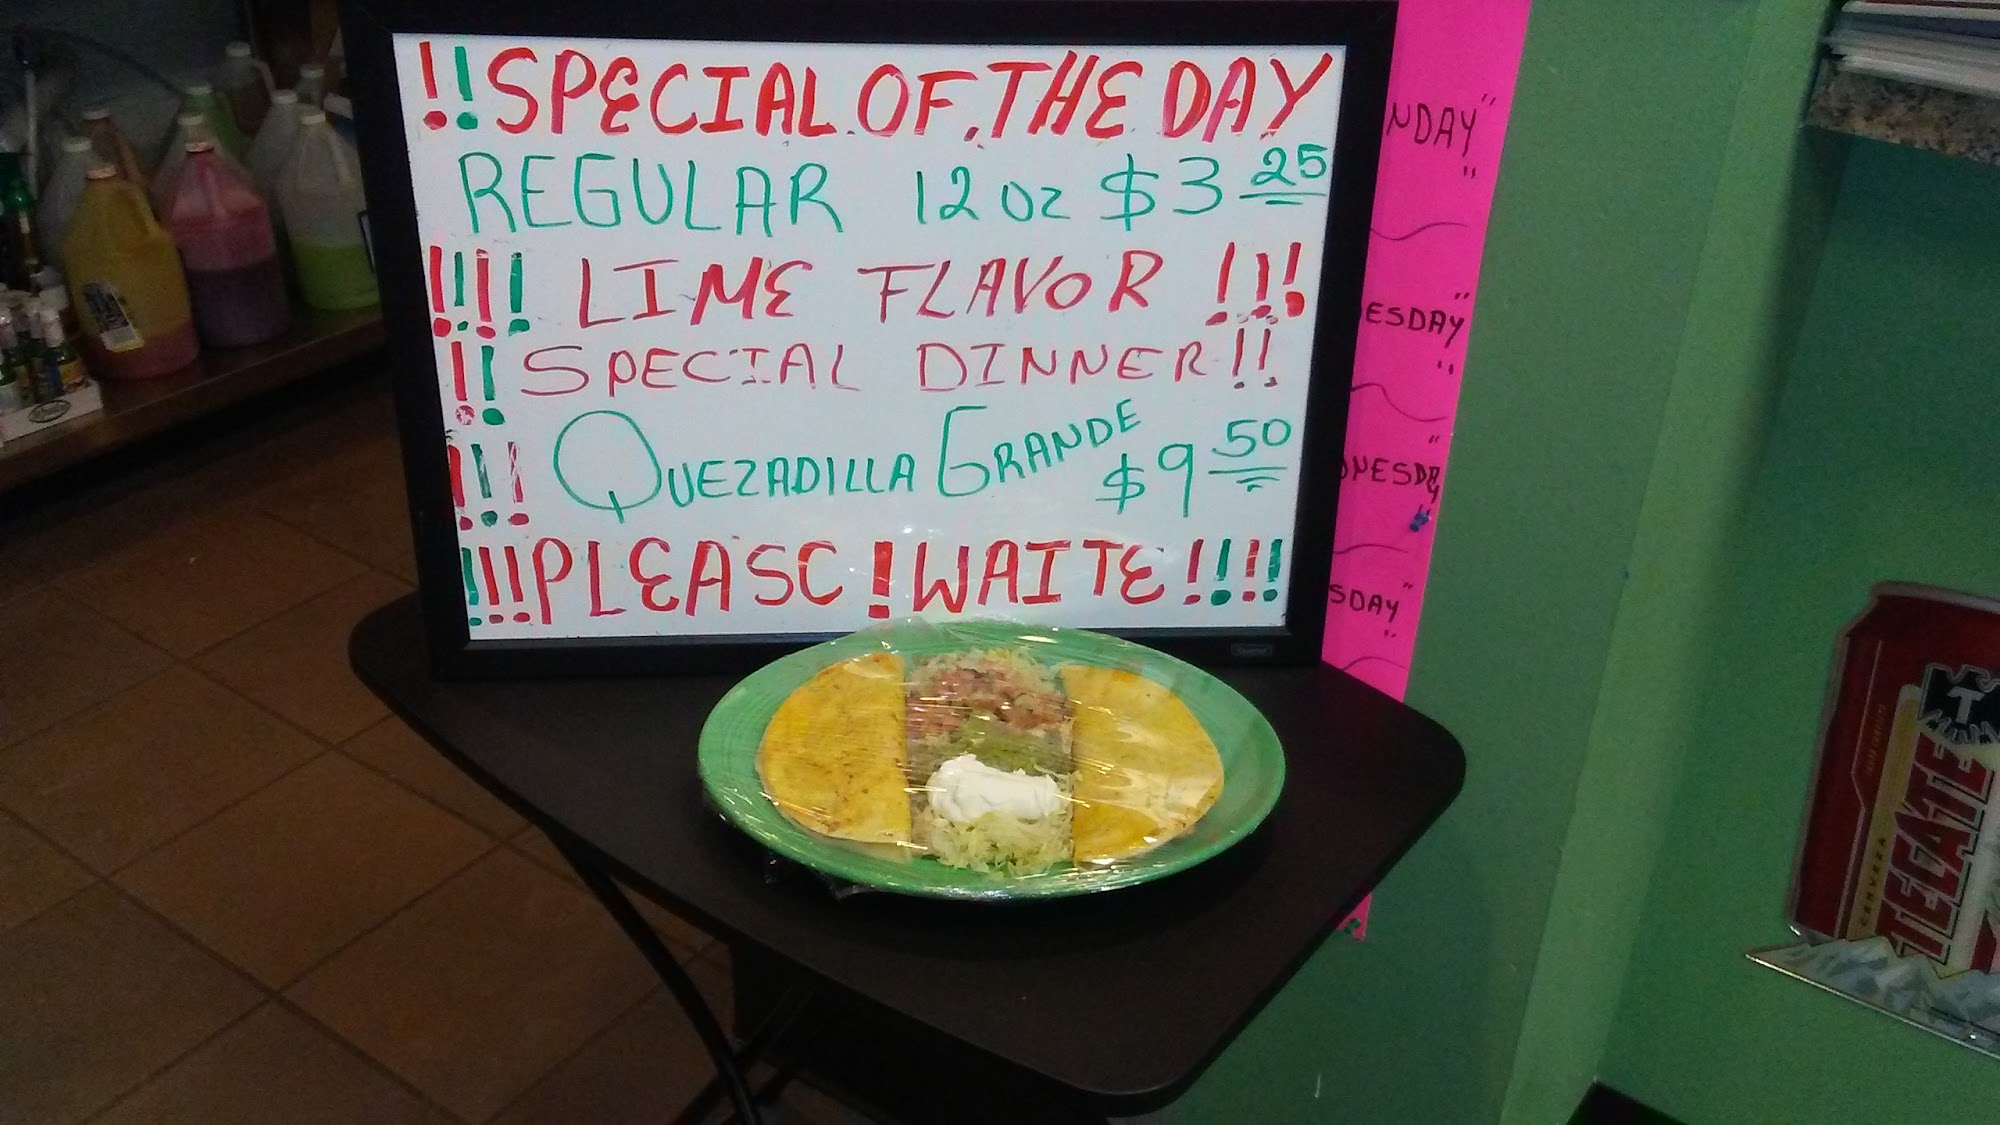 !!SPECIAL.OF.THE DAY
REGULAR 12 oz $3 25
!!!! LIME FLAVOR !!!
!! SPECIAL DINNER!!
!!! QUEZADILLA GRANDE $9 50
!!!PLEASC!WAITE!!!!
NDAY"
ESDAY"
NESDAY
SDAY"
T
TECATE
CERVEZA